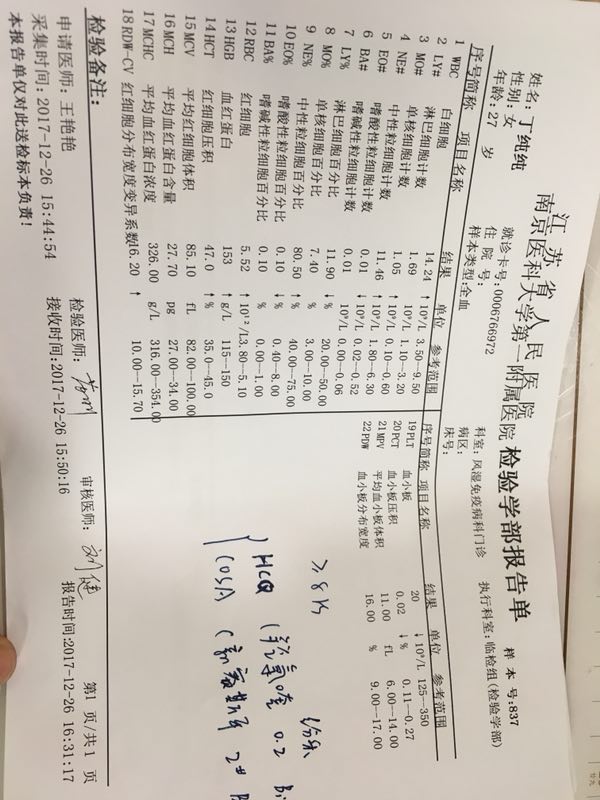 江苏省人民医院
南京医科大学第一附属医院 检验学部报告单
样本号:837
姓名:丁纯纯 就诊卡号:0006766972 科室:风湿免疫病科门诊 执行科室:临检组(检验学部)
性别:女 住院号: 病区:
年龄:27 岁 样本类型:全血 床号:
序号简称 项目名称 结果 单位 参考范围
1 WBC 白细胞 14.24 ↑ 10⁹/L 3.50--9.50
2 LY# 淋巴细胞计数 1.69 10⁹/L 1.10--3.20
3 MO# 单核细胞计数 1.05 ↑ 10⁹/L 0.10--0.60
4 NE# 中性粒细胞计数 11.46 ↑ 10⁹/L 1.80--6.30
5 EO# 嗜酸性粒细胞计数 0.01 ↓ 10⁹/L 0.02--0.52
6 BA# 嗜碱性粒细胞计数 0.01 10⁹/L 0.00--0.06
7 LY% 淋巴细胞百分比 11.90 ↓ % 20.00--50.00
8 MO% 单核细胞百分比 7.40 % 3.00--10.00
9 NE% 中性粒细胞百分比 80.50 ↑ % 40.00--75.00
10 EO% 嗜酸性粒细胞百分比 0.10 ↓ % 0.40--8.00
11 BA% 嗜碱性粒细胞百分比 0.10 % 0.00--1.00
12 RBC 红细胞 5.52 ↑ 10¹²/L 3.80--5.10
13 HGB 血红蛋白 153 ↑ g/L 115--150
14 HCT 红细胞压积 47.0 ↑ % 35.0--45.0
15 MCV 平均红细胞体积 85.10 fL 82.00--100.00
16 MCH 平均血红蛋白含量 27.70 pg 27.00--34.00
17 MCHC 平均血红蛋白浓度 326.00 g/L 316.00--354.00
18 RDW-CV 红细胞分布宽度变异系数 16.20 ↑ 10.00--15.70
序号简称 项目名称 结果 单位 参考范围
19 PLT 血小板 20 ↓ 10⁹/L 125--350
20 PCT 血小板压积 0.02 ↓ % 0.11--0.27
21 MPV 平均血小板体积 11.00 fL 6.00--14.00
22 PDW 血小板分布宽度 16.00 % 9.00--17.00
HCQ (羟氯喹 0.2
检验备注:
申请医师: 王艳艳 检验医师: 审核医师: 刘健 第1 页/共1 页
采集时间:2017-12-26 15:44:54 接收时间:2017-12-26 15:50:16 报告时间:2017-12-26 16:31:17
本报告单仅对此送检标本负责!